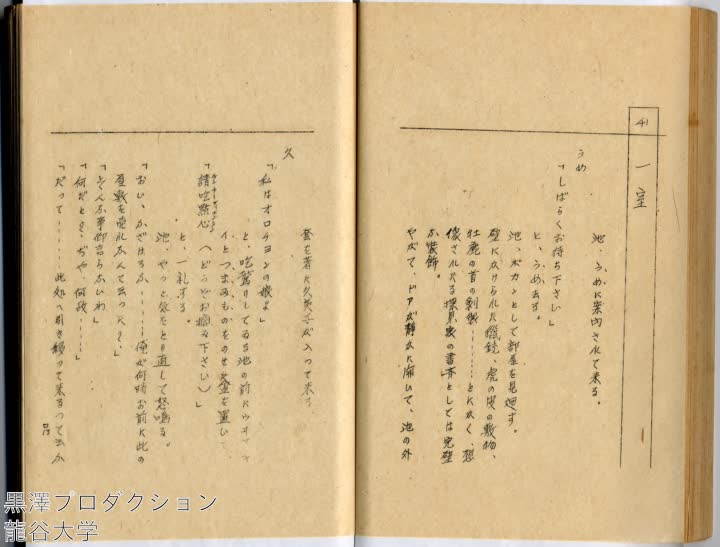 41 一室
池、うめに案内されて来る。
うめ
「しばらくお待ち下さい」
と、うめ去る。
池、ポカンとして部屋を見廻す。
壁にかけられた猟銃、虎の皮の敷物、
牡鹿の首の剥製………とにかく、想
像されたる探見家の書斉としては完璧
な装飾。
やがて、ドアが静かに開いて、池の外
套を着た久美子が入つて来る
久
「私はオロチヨンの娘よ」
と、吃驚りしてゐる池の前に
とつまみものをのせた盆を置いて
「請吃點心(どうぞお摘み下さい)」
と、一礼する。
池、やっと気をとり直して怒鳴る。
「おい、ふざけるな………俺が何時お前に此の
屋敷を売れなんて云つた?」
「そんな事仰言らないわ」
「何だと?ぢや、何故……」
「だつて………此処へ引き移つて来るつて云ふ
黒澤プロダクション
龍谷大学